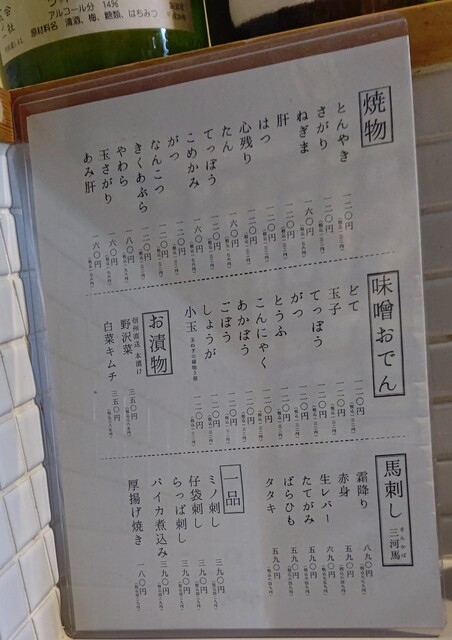 アルコール分 14%
原材料名 清酒、梅、糖類、はちみつ
焼物
とんやき 一二〇円
さがり 一二〇円
ねぎま 一六〇円
肝 一二〇円
はつ 一二〇円
心残り 一二〇円
たん 一六〇円
てっぽう 一二〇円
こめかみ 一六〇円
がつ 一二〇円
なんこつ 一二〇円
きくあぶら 一二〇円
やわら 一八〇円
玉さがり 一六〇円
あみ肝 一六〇円
味噌おでん
どて 一二〇円
玉子 一二〇円
てっぽう 一二〇円
がつ 一二〇円
とうふ 一二〇円
こんにゃく 一二〇円
あかぼう 一二〇円
ごぼう 一二〇円
しょうが 一二〇円
小玉 一二〇円
お漬物
信州直送 本漬け
野沢菜 三五〇円
白菜キムチ 三五〇円
馬刺し 三河馬
霜降り 八九〇円
赤身 五九〇円
生レバー 五九〇円
たてがみ 六九〇円
ばらひも 五九〇円
タタキ 五九〇円
一品
ミノ刺し 三九〇円
仔袋刺し 三九〇円
らっぱ刺し 三九〇円
パイカ煮込み 三九〇円
厚揚げ焼き 一八〇円